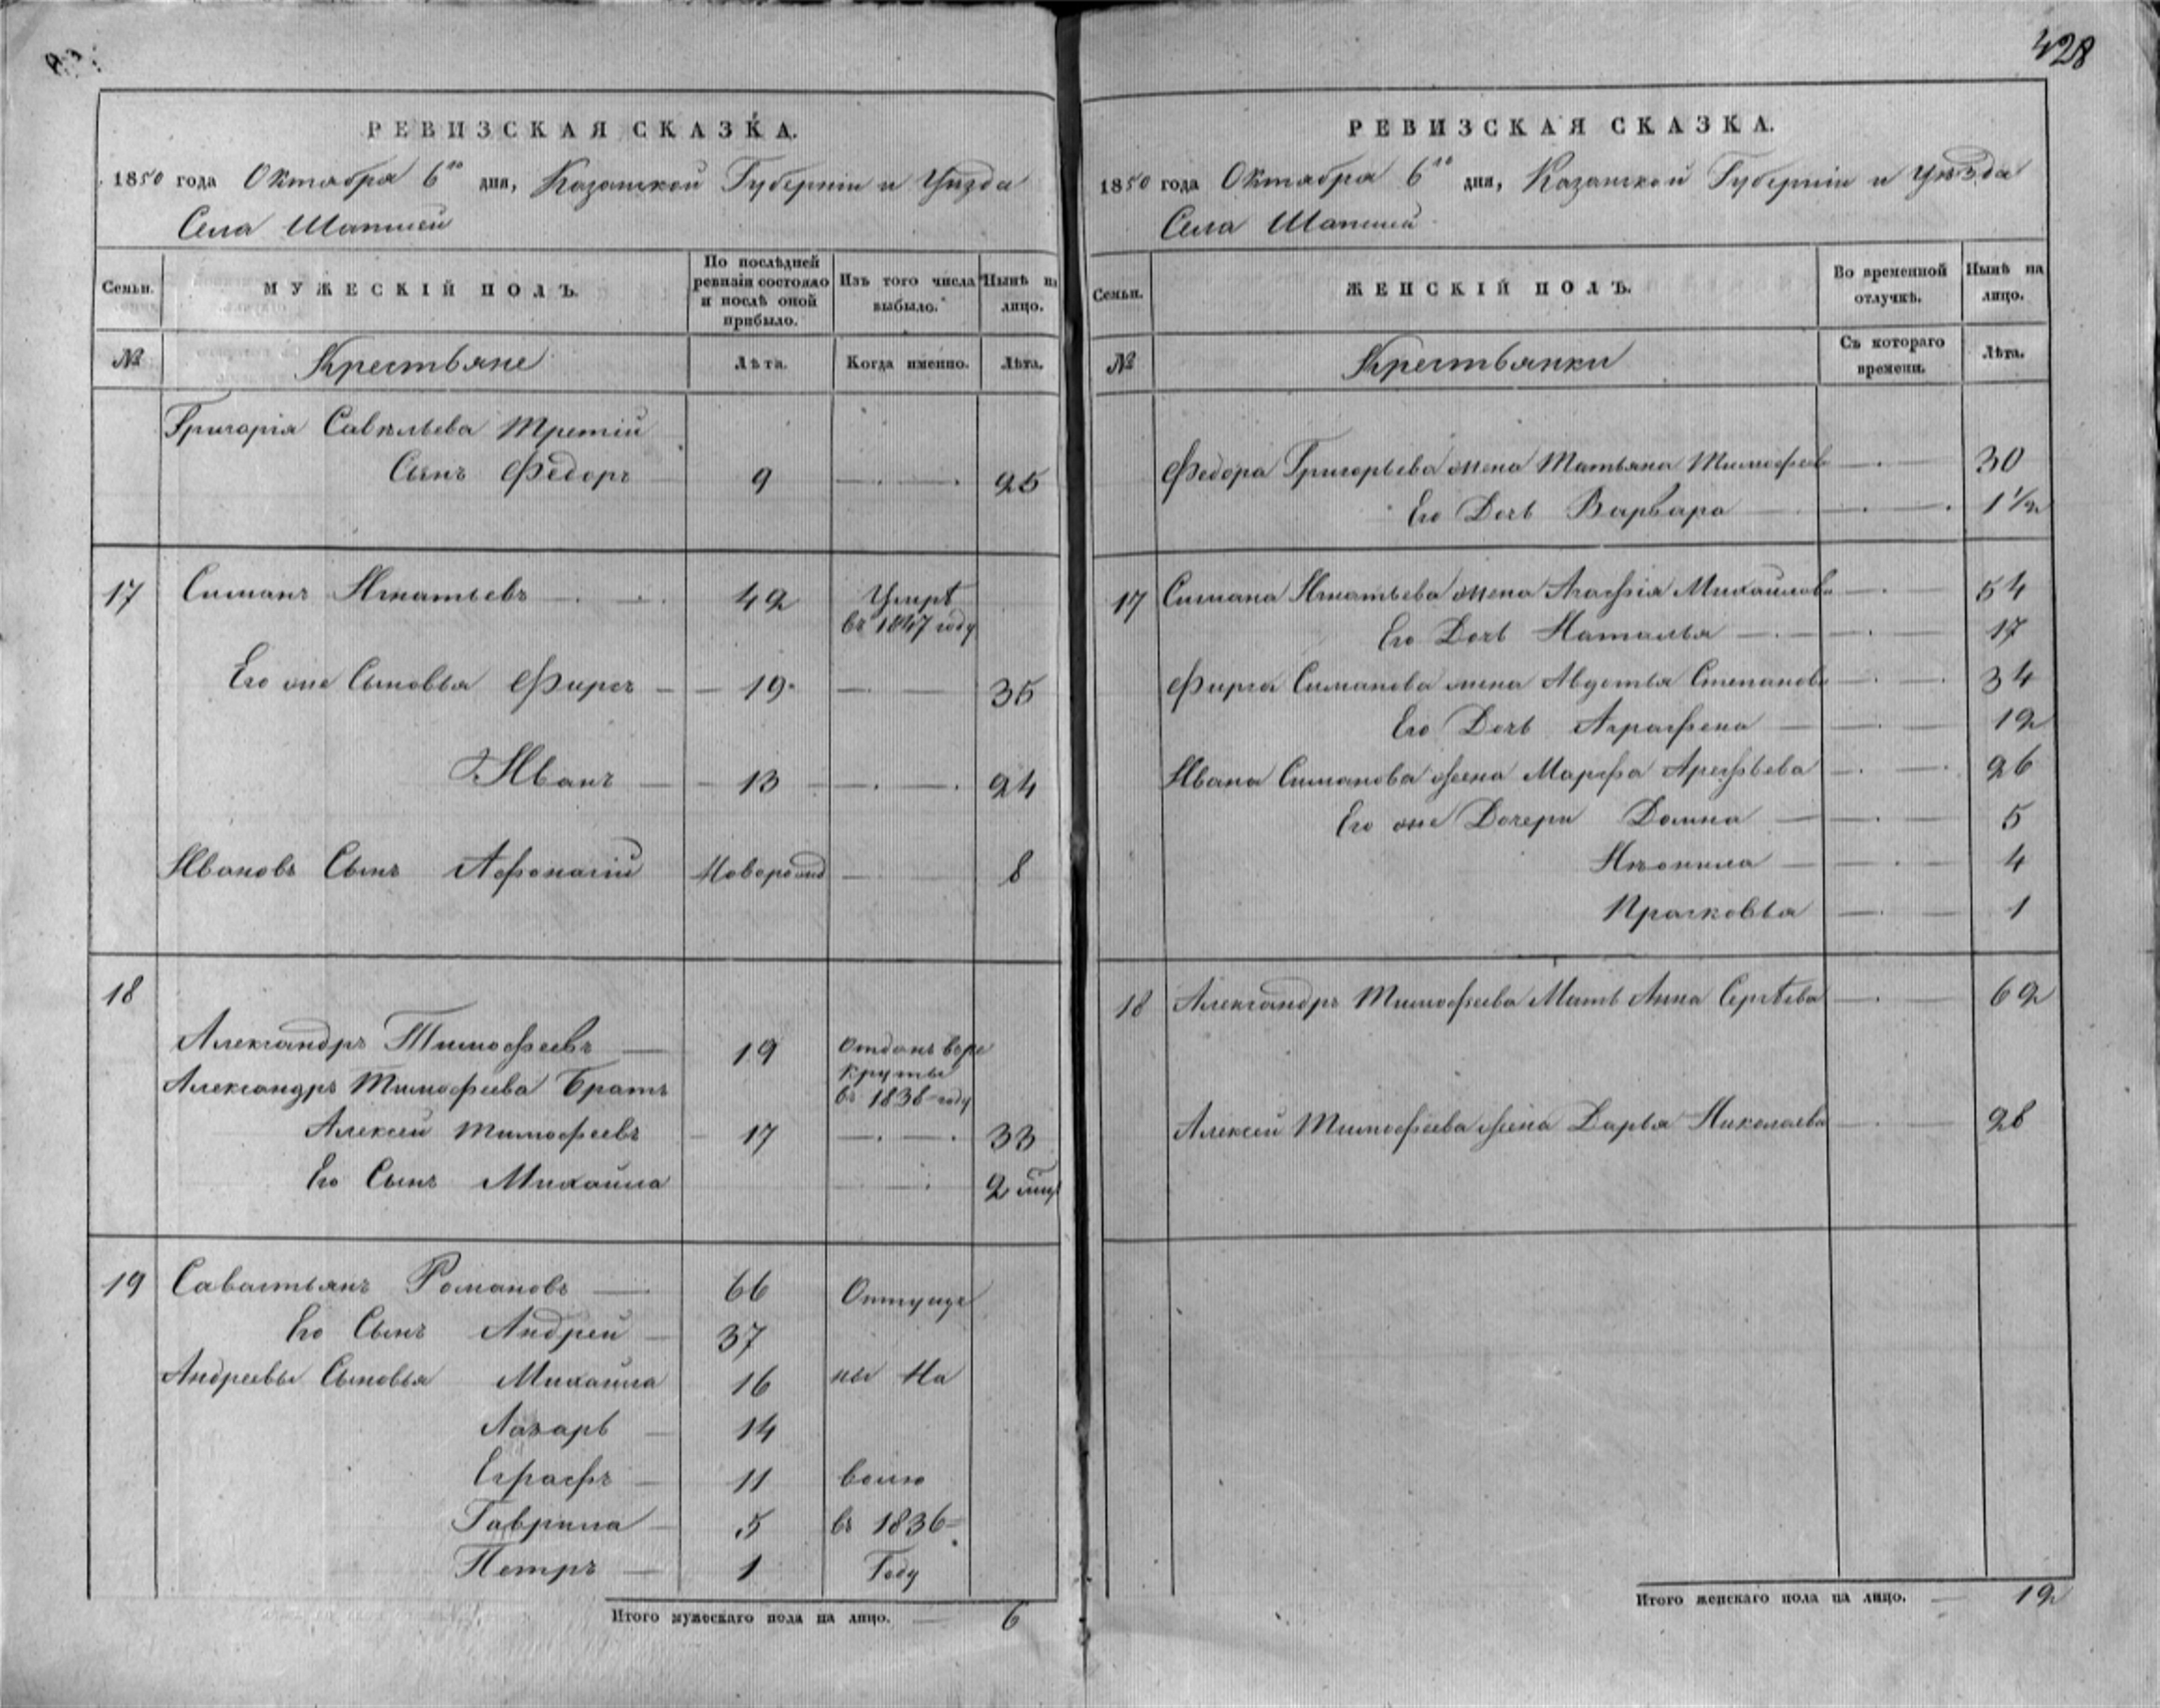 428
РЕВИЗСКАЯ СКАЗКА.
1850 года Октября 6го дня, Казанской Губерніи и Уѣзда
Села Шапшей
Семьи. МУЖЕСКІЙ ПОЛЪ. По послѣдней ревизіи состояло и послѣ оной прибыло. Изъ того числа выбыло. Нынѣ на лицо.
№ Крестьяне Лѣта. Когда именно. Лѣта.
Григорія Савельева Третій
Сынъ Федоръ 9 25
17 Симанъ Игнатьевъ 42 Умре
въ 1847 году
Его же Сыновья Фирсъ 19 35
Иванъ 13 24
Ивановъ Сынъ Афонасій Новорожд 8
18
Александръ Тимофеевъ 19 Отданъ вре
круты
Александръ Тимофеева Братъ въ 1838 году
Алексей Тимофеевъ 17 33
Его Сынъ Михайла 2 мѣц
19 Савастьянъ Романовъ 66 Отпуще
Его Сынъ Андрей 37
Андреевы Сыновья Михайла 16 ны На
Лазарь 14
Еграфъ 11 волю
Гаврила 5 въ 1836
Петръ 1 Году
Итого мужескаго пола на лицо. 6
РЕВИЗСКАЯ СКАЗКА.
1850 года Октября 6го дня, Казанской Губерніи и Уѣзда
Села Шапшей
Семьи. ЖЕНСКІЙ ПОЛЪ. Во временной отлучкѣ. Нынѣ на лицо.
№ Крестьянки Съ котораго времени. Лѣта.
Федора Григорьева жена Татьяна Тимофеев 30
Его Дочь Варвара 1 1/2
17 Симана Игнатьева жена Агафія Михайлова 54
Его Дочь Наталья 17
Фирса Симанова жена Авдотья Степанова 34
Его Дочь Аграфена 12
Ивана Симанова жена Марфа Арефьева 26
Его же Дочери Домна 5
Неонила 4
Прасковья 1
18 Александръ Тимофеева Мать Анна Сергѣева 62
Алексей Тимофеева жена Дарья Николаева 28
Итого женскаго пола на лицо. 12